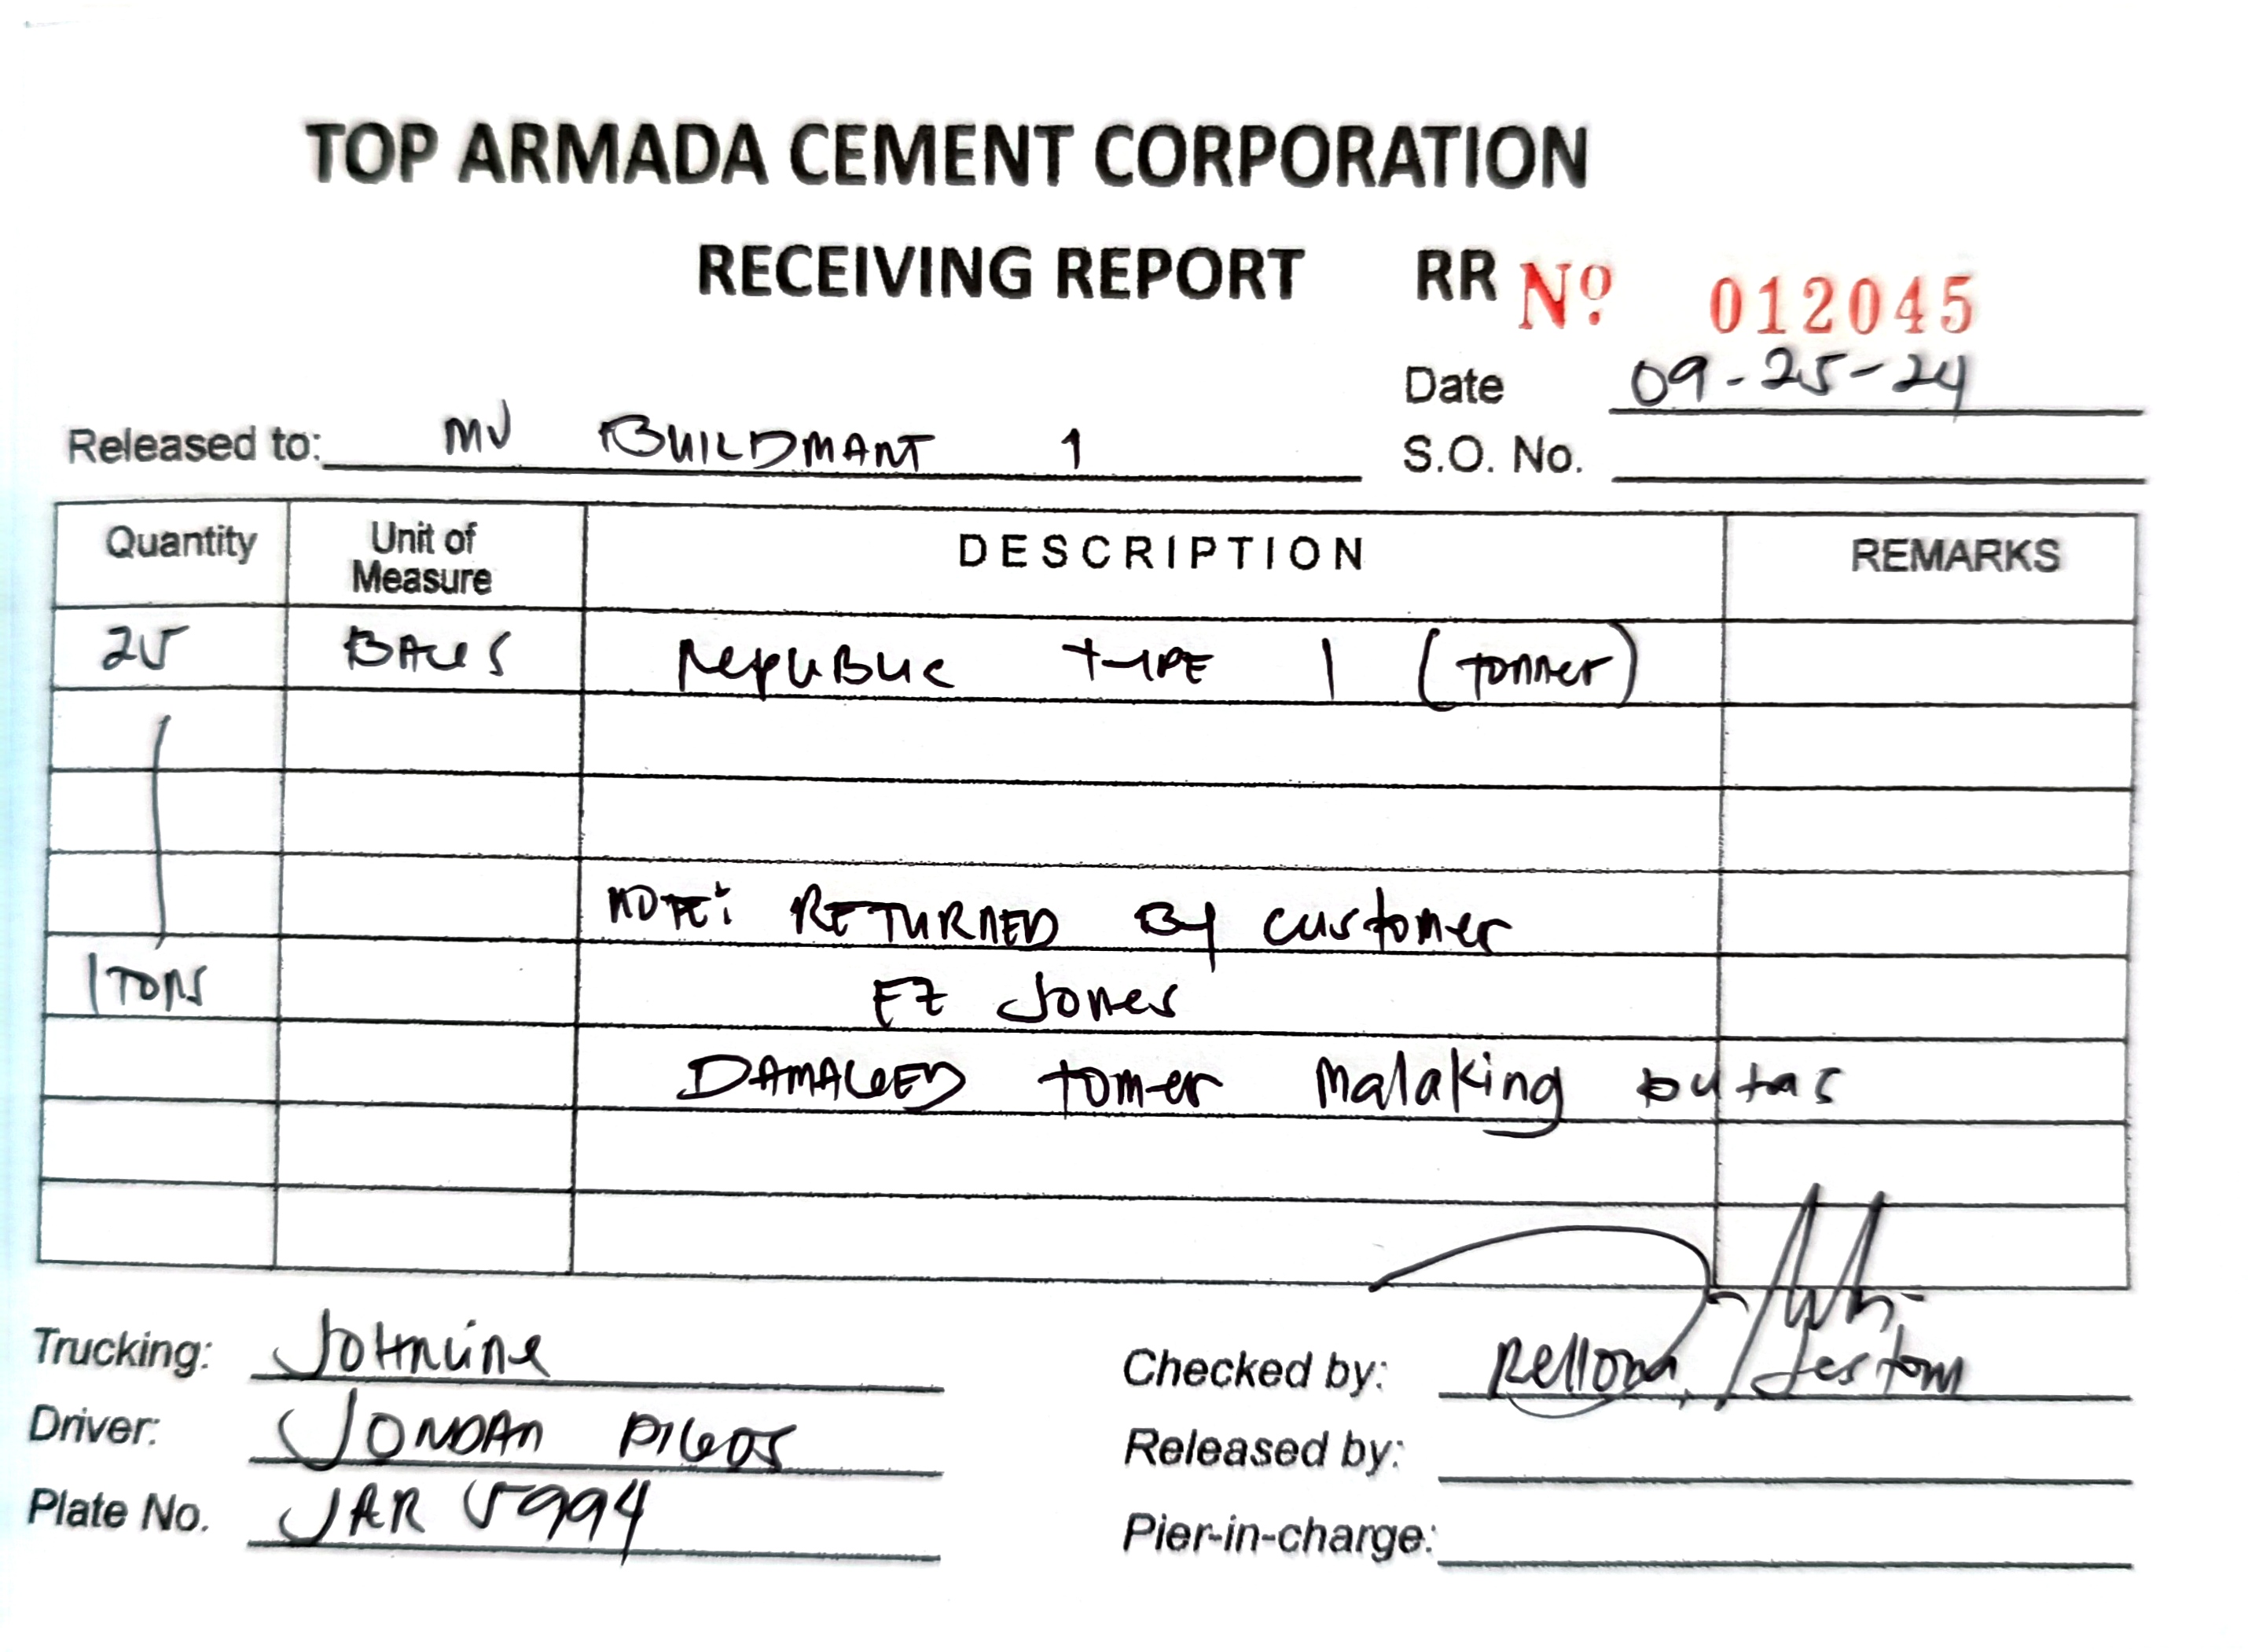 TOP ARMADA CEMENT CORPORATION
RECEIVING REPORT RR Nº 012045
Date 09-25-24
Released to: MV BUILDMART 1 S.O. No.
Quantity Unit of Measure DESCRIPTION REMARKS
25 BAGS REPUBLIC TYPE 1 (Tonner)
NOTE: RETURNED By customer
1 TONS EZ Jones
DAMAGED tonner Malaking butas
Trucking: JOHNLINE Checked by: Rellona, Jestom
Driver: JORDAN PIGOS Released by:
Plate No. JAR 5994 Pier-in-charge: